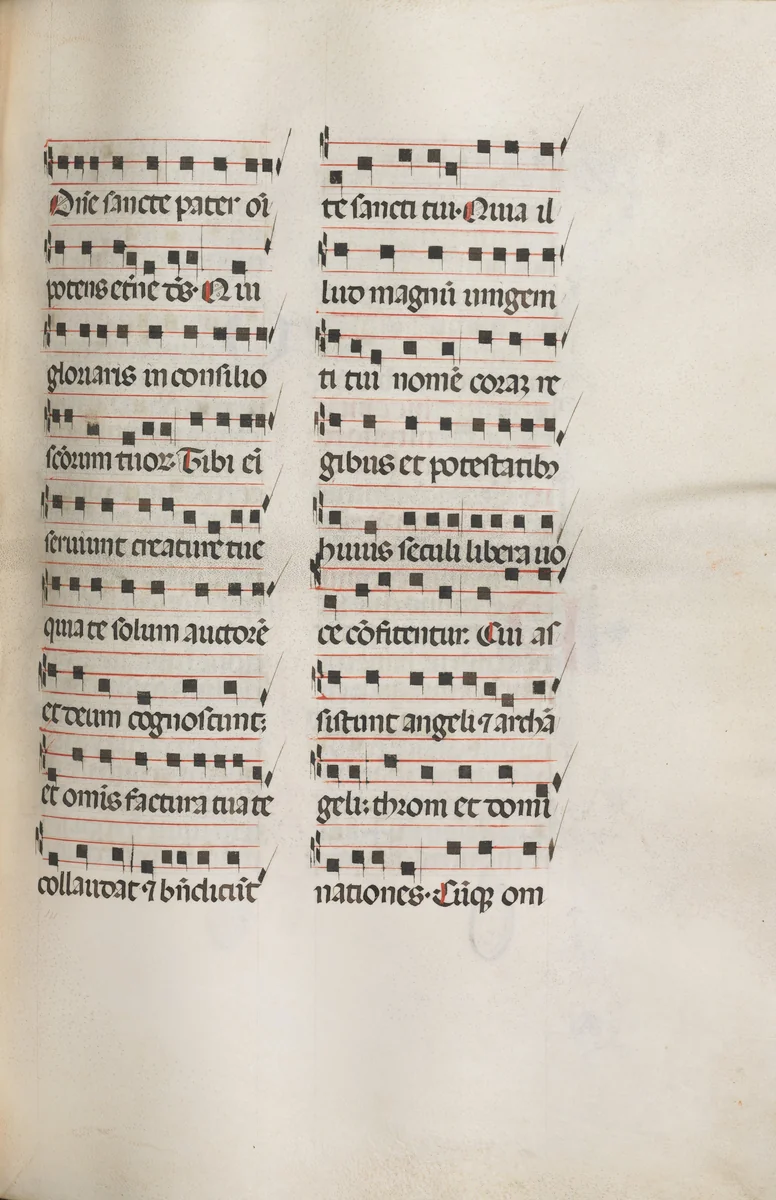 Dñe sancte pater oı̃
potens etñe ds̃. Qui
gloriaris in consilio
scõrum tuoꝝ. Tibi ei
seruiunt creature tue
quia te solum auctorẽ
et deum cognoscunt:
et omis factura tua te
collaudat ⁊ bñdicunt
te sancti tui. Quia il
lud magnũ unigeni
ti tui nomẽ coraꝫ re
gibus et potestatibꝰ
huius seculi libera uo
ce cõfitentur. Cui as
sistunt angeli ⁊ archã
geli: throni et domi
nationes. Cũqꝫ om